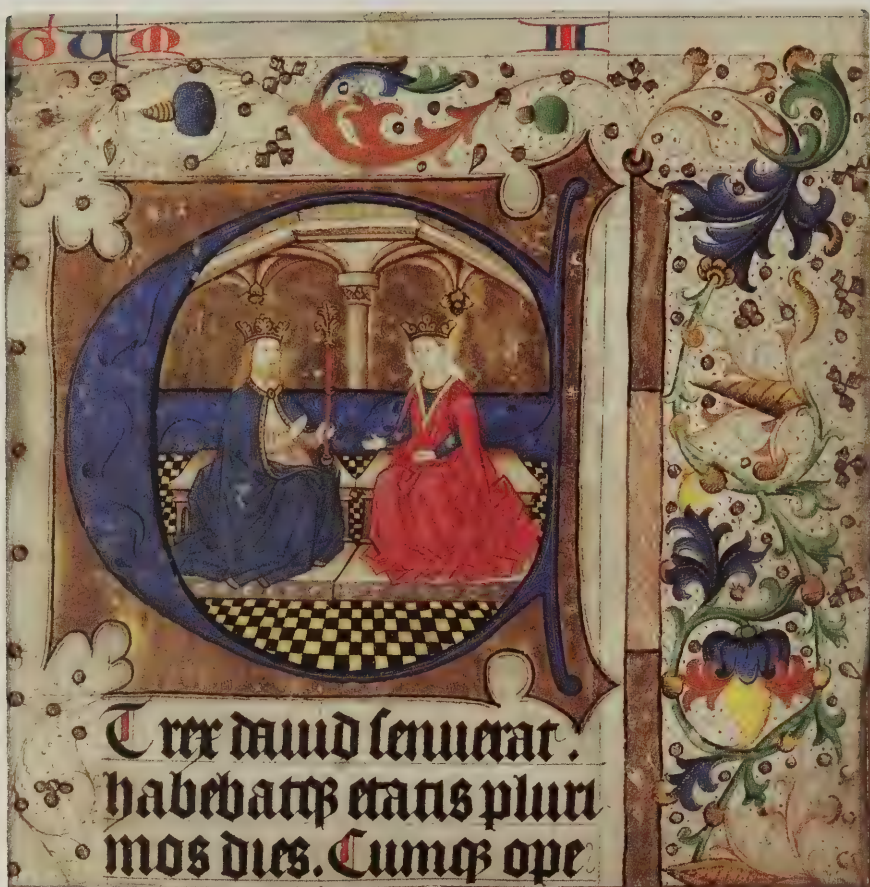 GUM III
ET rex dauid senuerat.
habebatqꝫ etatis pluri
mos dies. Cumqꝫ ope